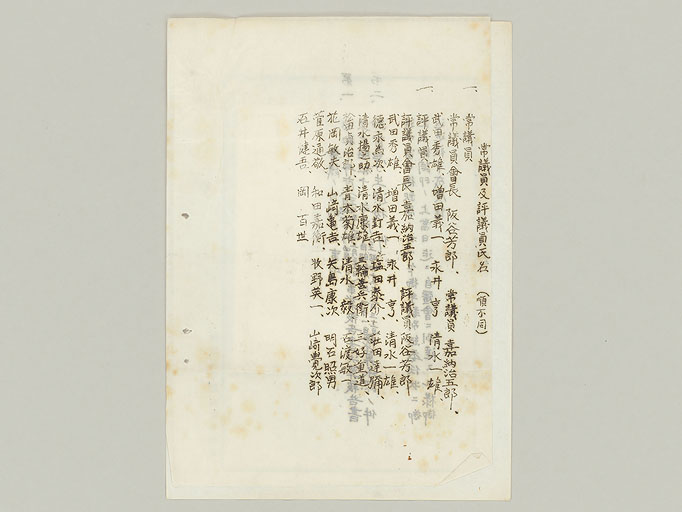 常議員及評議員氏名 (順不同)
一、常議員
常議員會長 阪谷芳郎、 常議員 嘉納治五郎、
武田秀雄、増田義一 永井 亨 清水一雄、
一、評議員
評議員會長 嘉納治五郎 評議員 阪谷芳郎
武田秀雄、増田義一、永井 亨、清水一雄、
德永 次、清水釘吉、塩田泰介、荘田達彌、
清水揚之助、清水康雄、三輪善兵衛、三好重道、
貞治郎、青木菊雄、清水 敏一、
花岡敏夫 山崎亀吉、矢島康次 明石照男
菅原通敬、和田嘉衡 牧野英一、山崎覺次郎
石井健吾、岡 百世